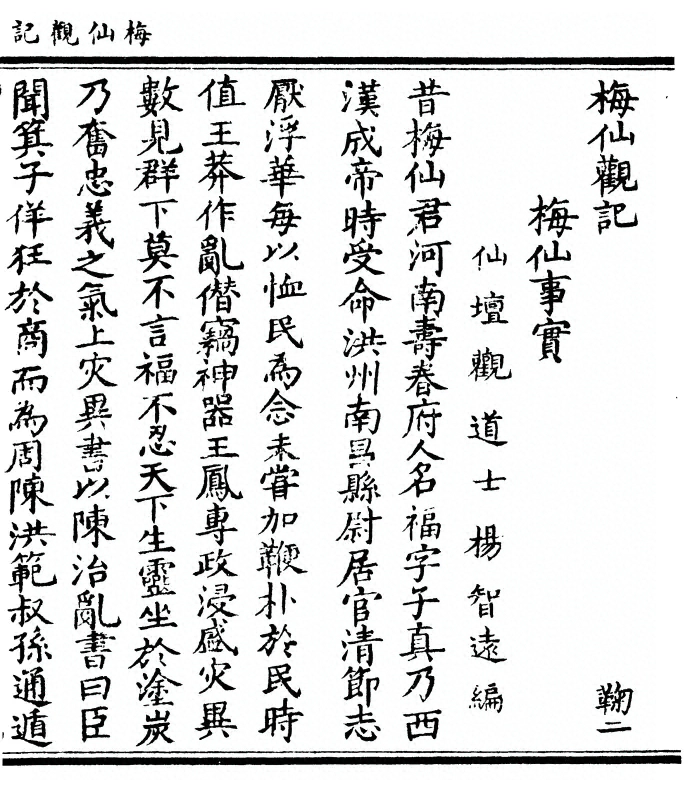 梅仙觀記
梅仙觀記 鞠二
梅仙事實
仙壇觀道士楊智遠編
昔梅仙君河南壽春府人名福字子真乃西
漢成帝時受命洪州南昌縣尉居官清節志
厭浮華每以恤民為念未嘗加鞭朴於民時
值王莽作亂僭竊神器王鳳專政浸盛灾異
數見群下莫不言福不忍天下生靈坐於塗炭
乃奮忠義之氣上灾異書以陳治亂書曰臣
聞箕子佯狂於商而為周陳洪範叔孫通遁